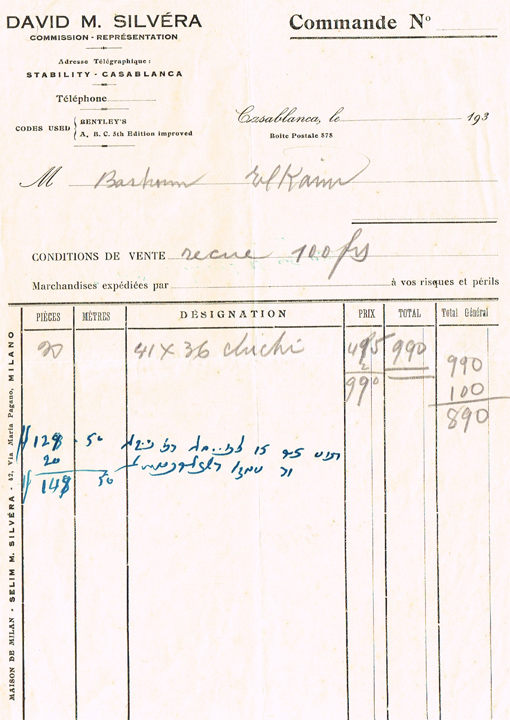 DAVID M. SILVÉRA
COMMISSION - REPRÉSENTATION
Adresse Télégraphique :
STABILITY - CASABLANCA
Téléphone
CODES USED { BENTLEY'S
A, B. C. 5th Edition improved
Commande No
Casablanca, le 193
Boîte Postale 578
M
CONDITIONS DE VENTE recue 100 frs
Marchandises expédiées par à vos risques et périls
PIÈCES MÈTRES DÉSIGNATION PRIX TOTAL Total Général
20 41 x 36 chichi 495 990 990
2
990 100
890
128 50
20
148 50
MAISON DE MILAN - SELIM M. SILVÉRA - 42, Via Mario Pagano, MILANO